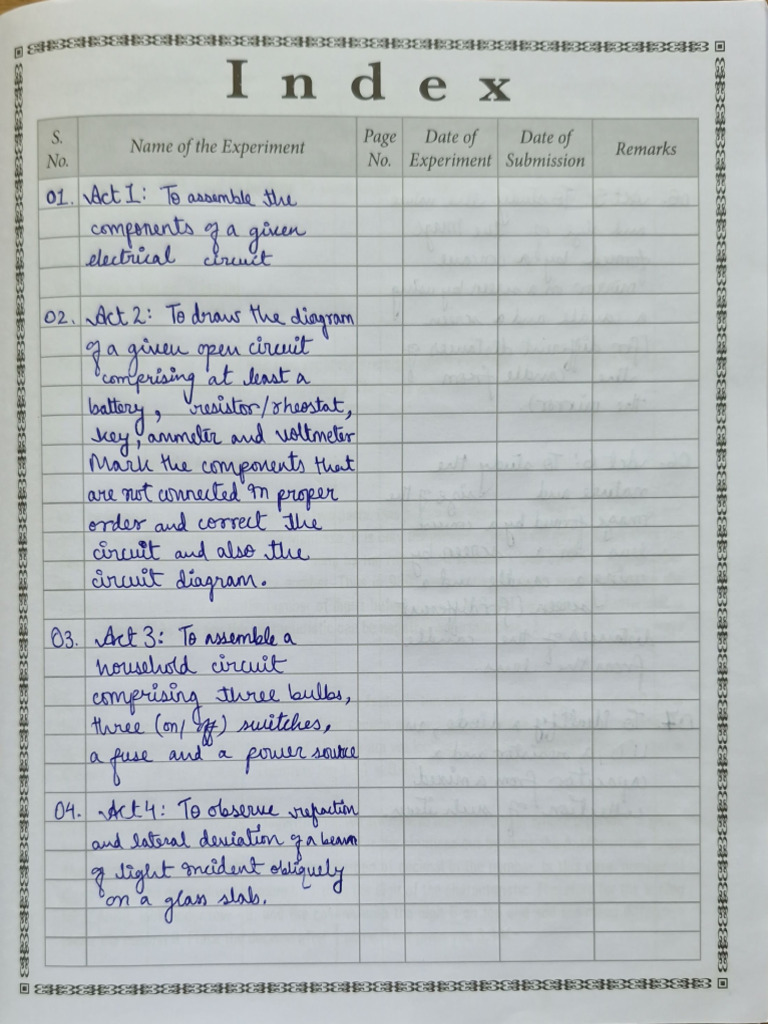 Index
S. No. Name of the Experiment Page No. Date of Experiment Date of Submission Remarks
01. Act 1: To assemble the
components of a given
electrical circuit
02. Act 2: To draw the diagram
of a given open circuit
comprising at least a
battery, resistor/rheostat,
key, ammeter and voltmeter
Mark the components that
are not connected in proper
order and correct the
circuit and also the
circuit diagram.
03. Act 3: To assemble a
household circuit
comprising three bulbs,
three (on/off) switches,
a fuse and a power source
04. Act 4: To observe refraction
and lateral deviation of a beam
of light incident obliquely
on a glass slab.